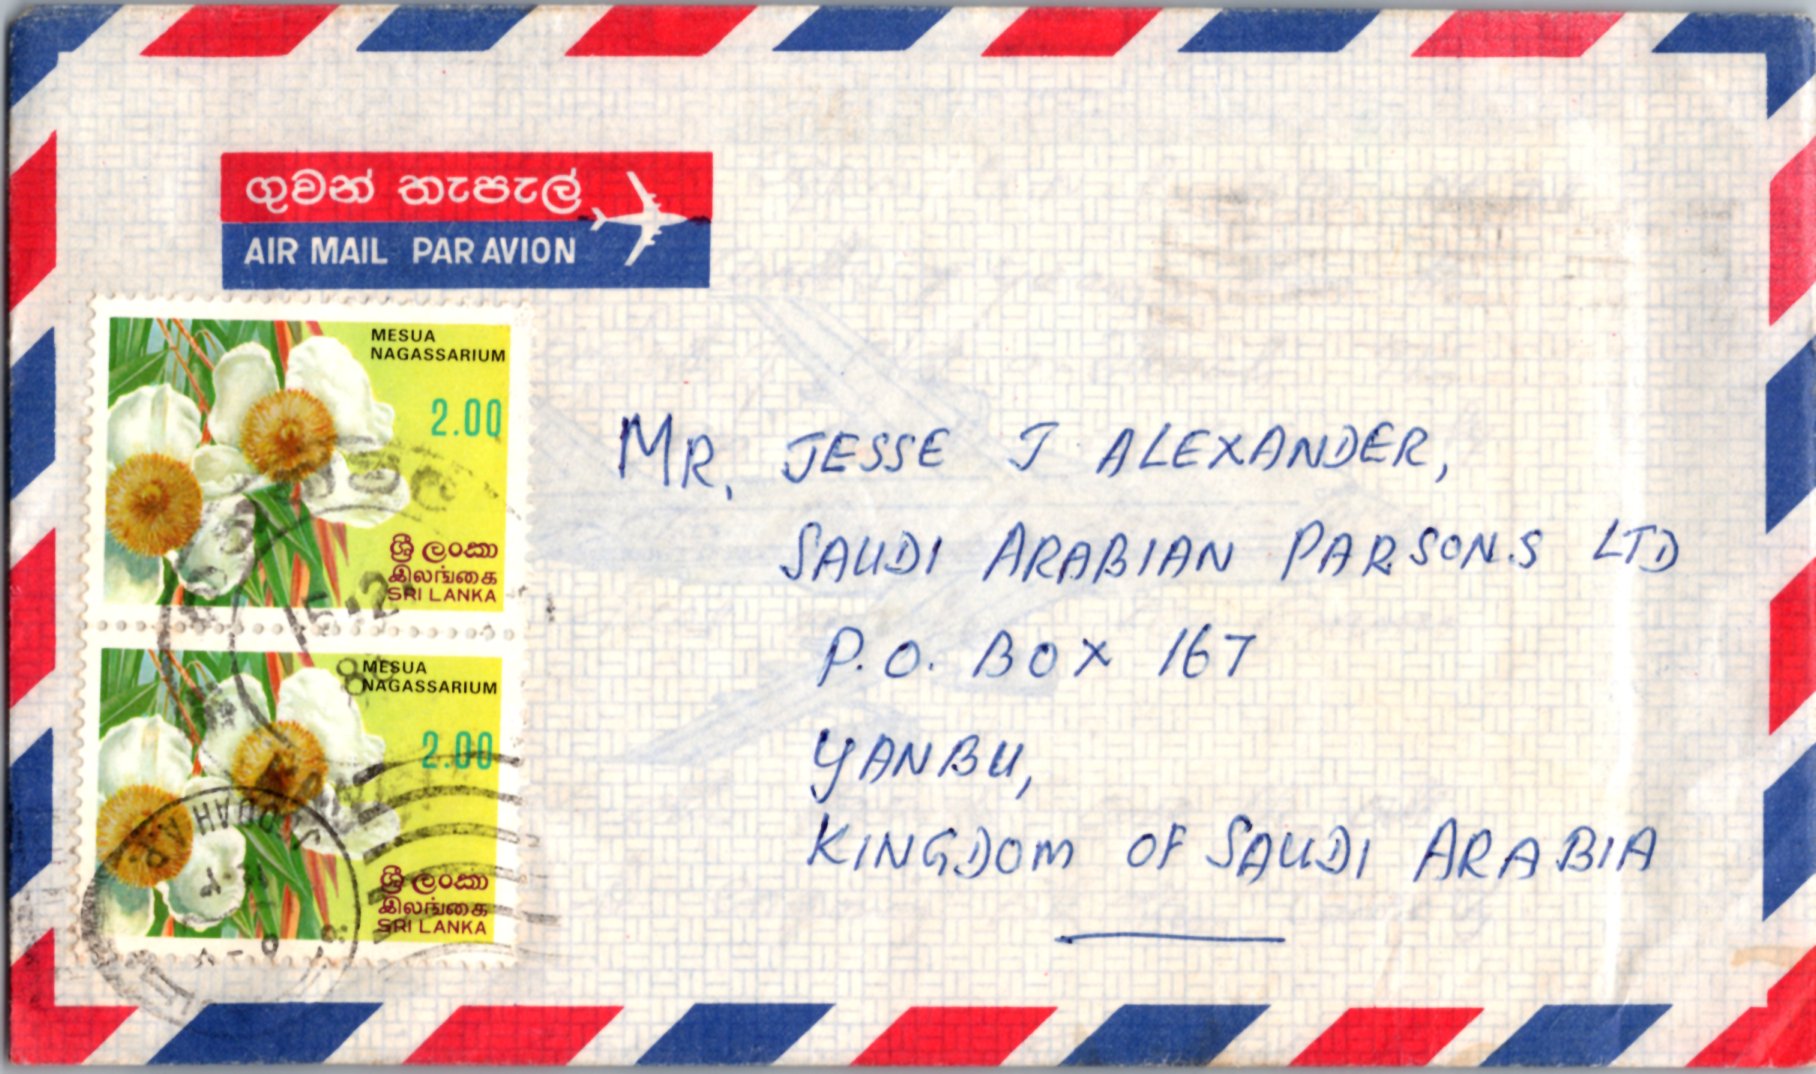 ගුවන් තැපැල්
AIR MAIL PAR AVION
MESUA
NAGASSARIUM
2.00
ශ්‍රී ලංකා
இலங்கை
SRI LANKA
MESUA
NAGASSARIUM
2.00
ශ්‍රී ලංකා
இலங்கை
SRI LANKA
MR. JESSE J ALEXANDER,
SAUDI ARABIAN PARSONS LTD
P.O. BOX 167
YANBU,
KINGDOM OF SAUDI ARABIA